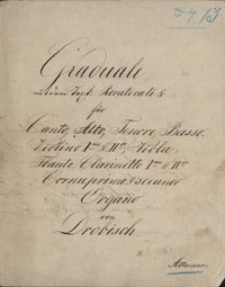 Graduale
mit dem Text: Roratecoeli &
für
Canto, Alto, Tenore, Basso.
Violino Imo & IIdo, Viola
Flauto Clarinetto Imo & IIdo
Cornu primo & secundo
Organo
von
Drobisch